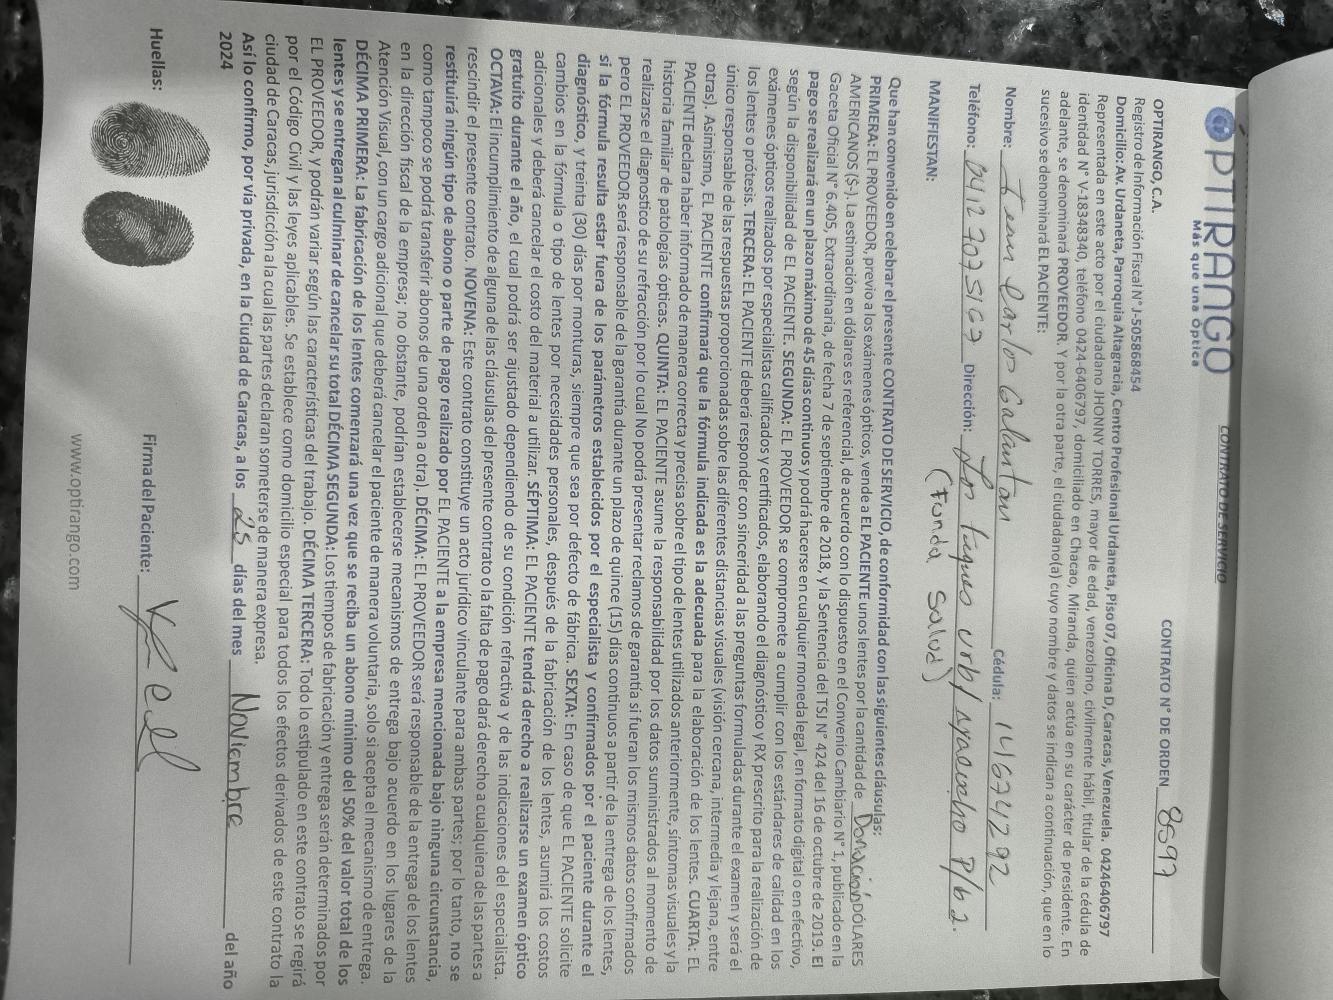 OPTIRANGO
Más que una Óptica
CONTRATO DE SERVICIO
CONTRATO N° DE ORDEN 8597
OPTIRANGO, C.A.
Registro de Información Fiscal N° J-505868454
Domicilio: Av. Urdaneta, Parroquia Altagracia, Centro Profesional Urdaneta, Piso 07, Oficina D, Caracas, Venezuela. 04246406797
Representada en este acto por el ciudadano JHONNY TORRES, mayor de edad, venezolano, civilmente hábil, titular de la cédula de
identidad N° V-18348340, teléfono 0424-6406797, domiciliado en Chacao, Miranda, quien actúa en su carácter de presidente. En
adelante, se denominará PROVEEDOR. Y por la otra parte, el ciudadano(a) cuyo nombre y datos se indican a continuación, que en lo
sucesivo se denominará EL PACIENTE:
Nombre: Jean Carlos Galantón Cédula: 14674292
Teléfono: 04127073167 Dirección: Los Tuques Urb/ Ayacucho P/b 2.
(Funda Salud)
MANIFIESTAN:
Que han convenido en celebrar el presente CONTRATO DE SERVICIO, de conformidad con las siguientes cláusulas:
PRIMERA: EL PROVEEDOR, previo a los exámenes ópticos, vende a EL PACIENTE unos lentes por la cantidad de Donación DÓLARES
AMERICANOS ($-). La estimación en dólares es referencial, de acuerdo con lo dispuesto en el Convenio Cambiario N° 1, publicado en la
Gaceta Oficial N° 6.405, Extraordinaria, de fecha 7 de septiembre de 2018, y la Sentencia del TSJ N° 424 del 16 de octubre de 2019. El
pago se realizará en un plazo máximo de 45 días continuos y podrá hacerse en cualquier moneda legal, en formato digital o en efectivo,
según la disponibilidad de EL PACIENTE. SEGUNDA: EL PROVEEDOR se compromete a cumplir con los estándares de calidad en los
exámenes ópticos realizados por especialistas calificados y certificados, elaborando el diagnóstico y RX prescrito para la realización de
los lentes o prótesis. TERCERA: EL PACIENTE deberá responder con sinceridad a las preguntas formuladas durante el examen y será el
único responsable de las respuestas proporcionadas sobre las diferentes distancias visuales (visión cercana, intermedia y lejana, entre
otras). Asimismo, EL PACIENTE confirmará que la fórmula indicada es la adecuada para la elaboración de los lentes. CUARTA: EL
PACIENTE declara haber informado de manera correcta y precisa sobre el tipo de lentes utilizados anteriormente, síntomas visuales y la
historia familiar de patologías ópticas. QUINTA: EL PACIENTE asume la responsabilidad por los datos suministrados al momento de
realizarse el diagnostico de su refracción por lo cual No podrá presentar reclamos de garantía si fueran los mismos datos confirmados
pero EL PROVEEDOR será responsable de la garantía durante un plazo de quince (15) días continuos a partir de la entrega de los lentes,
si la fórmula resulta estar fuera de los parámetros establecidos por el especialista y confirmados por el paciente durante el
diagnóstico, y treinta (30) días por monturas, siempre que sea por defecto de fábrica. SEXTA: En caso de que EL PACIENTE solicite
cambios en la fórmula o tipo de lentes por necesidades personales, después de la fabricación de los lentes, asumirá los costos
adicionales y deberá cancelar el costo del material a utilizar. SÉPTIMA: EL PACIENTE tendrá derecho a realizarse un examen óptico
gratuito durante el año, el cual podrá ser ajustado dependiendo de su condición refractiva y de las indicaciones del especialista.
OCTAVA: El incumplimiento de alguna de las cláusulas del presente contrato o la falta de pago dará derecho a cualquiera de las partes a
rescindir el presente contrato. NOVENA: Este contrato constituye un acto jurídico vinculante para ambas partes; por lo tanto, no se
restituirá ningún tipo de abono o parte de pago realizado por EL PACIENTE a la empresa mencionada bajo ninguna circunstancia,
como tampoco se podrá transferir abonos de una orden a otra). DÉCIMA: EL PROVEEDOR será responsable de la entrega de los lentes
en la dirección fiscal de la empresa; no obstante, podrían establecerse mecanismos de entrega bajo acuerdo en los lugares de la
Atención Visual, con un cargo adicional que deberá cancelar el paciente de manera voluntaria, solo si acepta el mecanismo de entrega.
DÉCIMA PRIMERA: La fabricación de los lentes comenzará una vez que se reciba un abono mínimo del 50% del valor total de los
lentes y se entregan al culminar de cancelar su total DÉCIMA SEGUNDA: Los tiempos de fabricación y entrega serán determinados por
EL PROVEEDOR, y podrán variar según las características del trabajo. DÉCIMA TERCERA: Todo lo estipulado en este contrato se regirá
por el Código Civil y las leyes aplicables. Se establece como domicilio especial para todos los efectos derivados de este contrato la
ciudad de Caracas, jurisdicción a la cual las partes declaran someterse de manera expresa.
Así lo confirmo, por vía privada, en la Ciudad de Caracas, a los 25 días del mes Noviembre del año
2024
Huellas: Firma del Paciente:
www.optirango.com